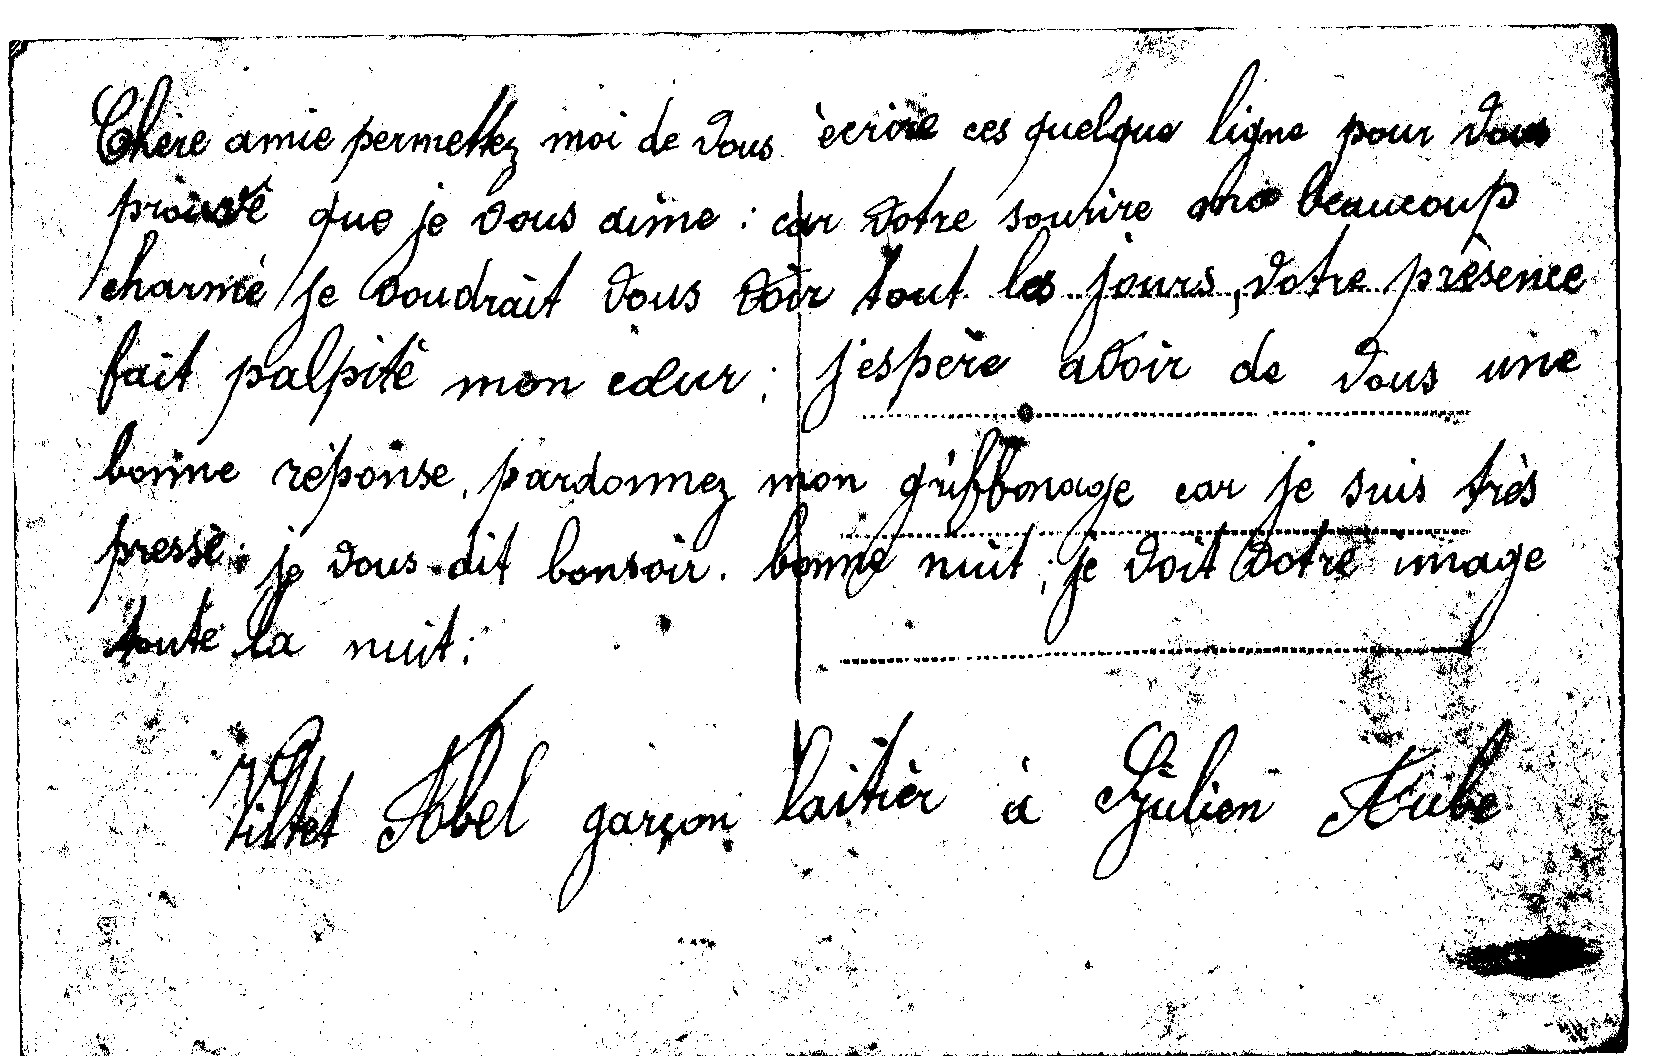 Chère amie permettez moi de vous ècrire ces quelque ligne pour vous
prouvé que je vous aime : car votre sourire ma beaucoup
charmé je voudrait vous voir tout les jours, votre présence
fait palpité mon cœur ; j'espère avoir de vous une
bonne réponse, pardonnez mon griffonage car je suis très
pressé : je vous dit bonsoir. bonne nuit ; je voit votre image
toute la nuit :
Viltet Abel garçon laitièr à Julien Aube